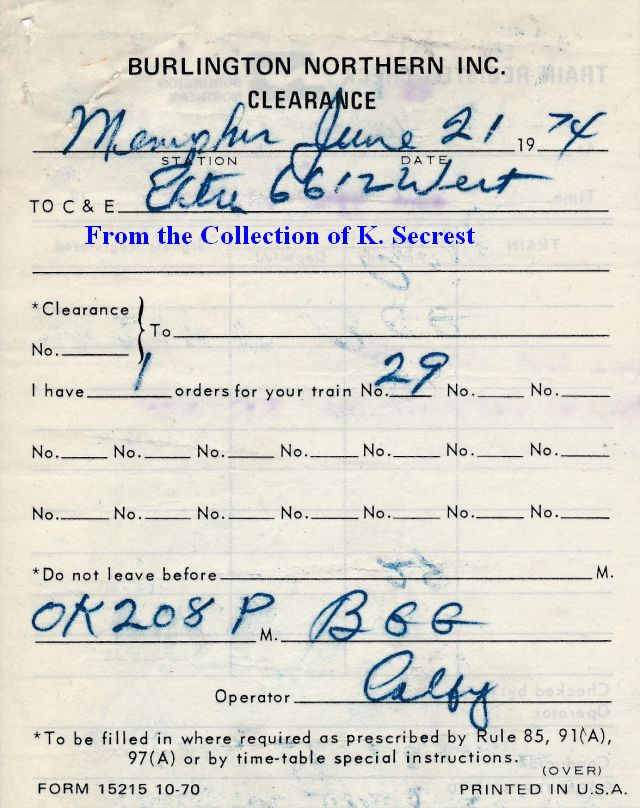 BURLINGTON NORTHERN INC.
CLEARANCE
Memphis June 21 1974
STATION DATE
TO C & E Extra 6612 West
From the Collection of K. Secrest
*Clearance
No. } To
I have 1 orders for your train No. 29 No. No.
No. No. No. No. No. No. No.
No. No. No. No. No. No. No.
*Do not leave before M.
OK 208 P M. BGG
Operator
*To be filled in where required as prescribed by Rule 85, 91(A),
97(A) or by time-table special instructions.
(OVER)
FORM 15215 10-70 PRINTED IN U.S.A.